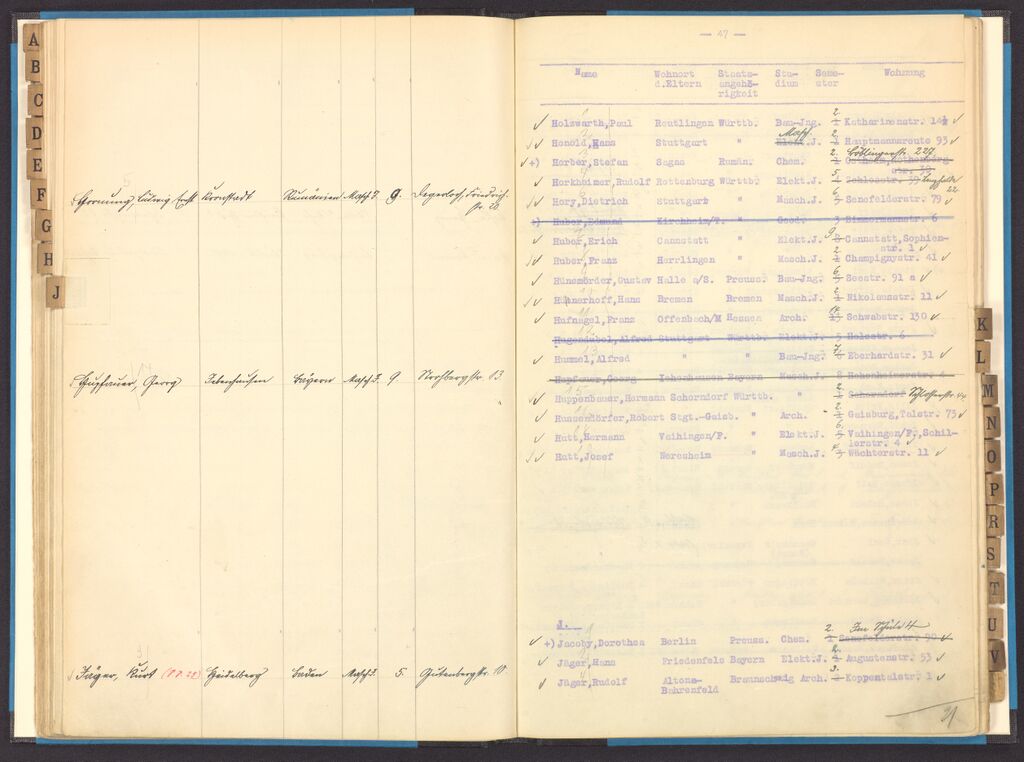 A
B
C
D
E
F
G
H
J
Hornung, Ludwig Ernst Kronstadt Rumänien Masch.J. 9. Degerloch, Friedrich-
str. 20
Hupfauer, Georg Ichenhausen Bayern Masch.J. 9. Strohbergstr. 13.
Jäger, Kurt Heidelberg Baden Masch.J. 5. Gutenbergstr. 10.
— 47 —
Name Wohnort Staats- Stu- Seme- Wohnung
d.Eltern angehö- dium ster
rigkeit
Holzwarth,Paul Reutlingen Württb. Bau-Jng. 2. Katharinenstr. 14½
Masch.
Honold,Hans Stuttgart " Elekt.J. 2. Hauptmannsreute 93
Böblingerstr. 227
+) Horber,Stefan Sagas Rumän. Chem. 2.
Horkheimer,Rudolf Rottenburg Württb. Elekt.J. 5. Schlosstr.
22
Hory,Dietrich Stuttgart " Masch.J. 6. Senefelderstr. 79
+) Huber,Edmund Kirchheim/T. " Geod. 3 Zimmermannstr. 6
Huber,Erich Cannstatt " Elekt.J. 9 8 Cannstatt,Sophien-
str. 1
Huber,Franz Herrlingen " Masch.J. 2. Champignystr. 41
Hünemörder,Gustav Halle a/S. Preuss. Bau-Jng. 6 5 Seestr. 91 a
Hünnerhoff,Hans Bremen Bremen Masch.J. 2. Nikolausstr. 11
Hufnagel,Franz Offenbach/M Hessen Arch. Schwabstr. 130
Hugendubel,Alfred Stuttgart Württb. Elekt.J. Holzstr. 6
Hummel,Alfred " " Bau-Jng. 7. Eberhardstr. 31
Hupfauer,Georg Ichenhausen Bayern Masch.J. 8 Hohenheimerstr. 4
Huppenbauer,Hermann Schorndorf Württb. " 2. Schorndorf
Hussendörfer,Robert Stgt.-Gaisb. " Arch. 2. Gaisburg,Talstr. 73
Hutt,Hermann Vaihingen/F. " Elekt.J. 6. Vaihingen/F.,Schil-
lerstr. 4
Hutt,Josef Neresheim " Masch.J. Wächterstr. 11
J.
2. Im Schüle 4
+) Jacoby,Dorothea Berlin Preuss. Chem. 1 Senefelderstr. 90
Jäger,Hans Friedenfels Bayern Elekt.J. 2. 1 Augustenstr. 53
Jäger,Rudolf Altona- Braunschwig Arch. 3. 2 Koppentalstr. 1
Bahrenfeld
K
L
M
N
O
P
R
S
T
U
V